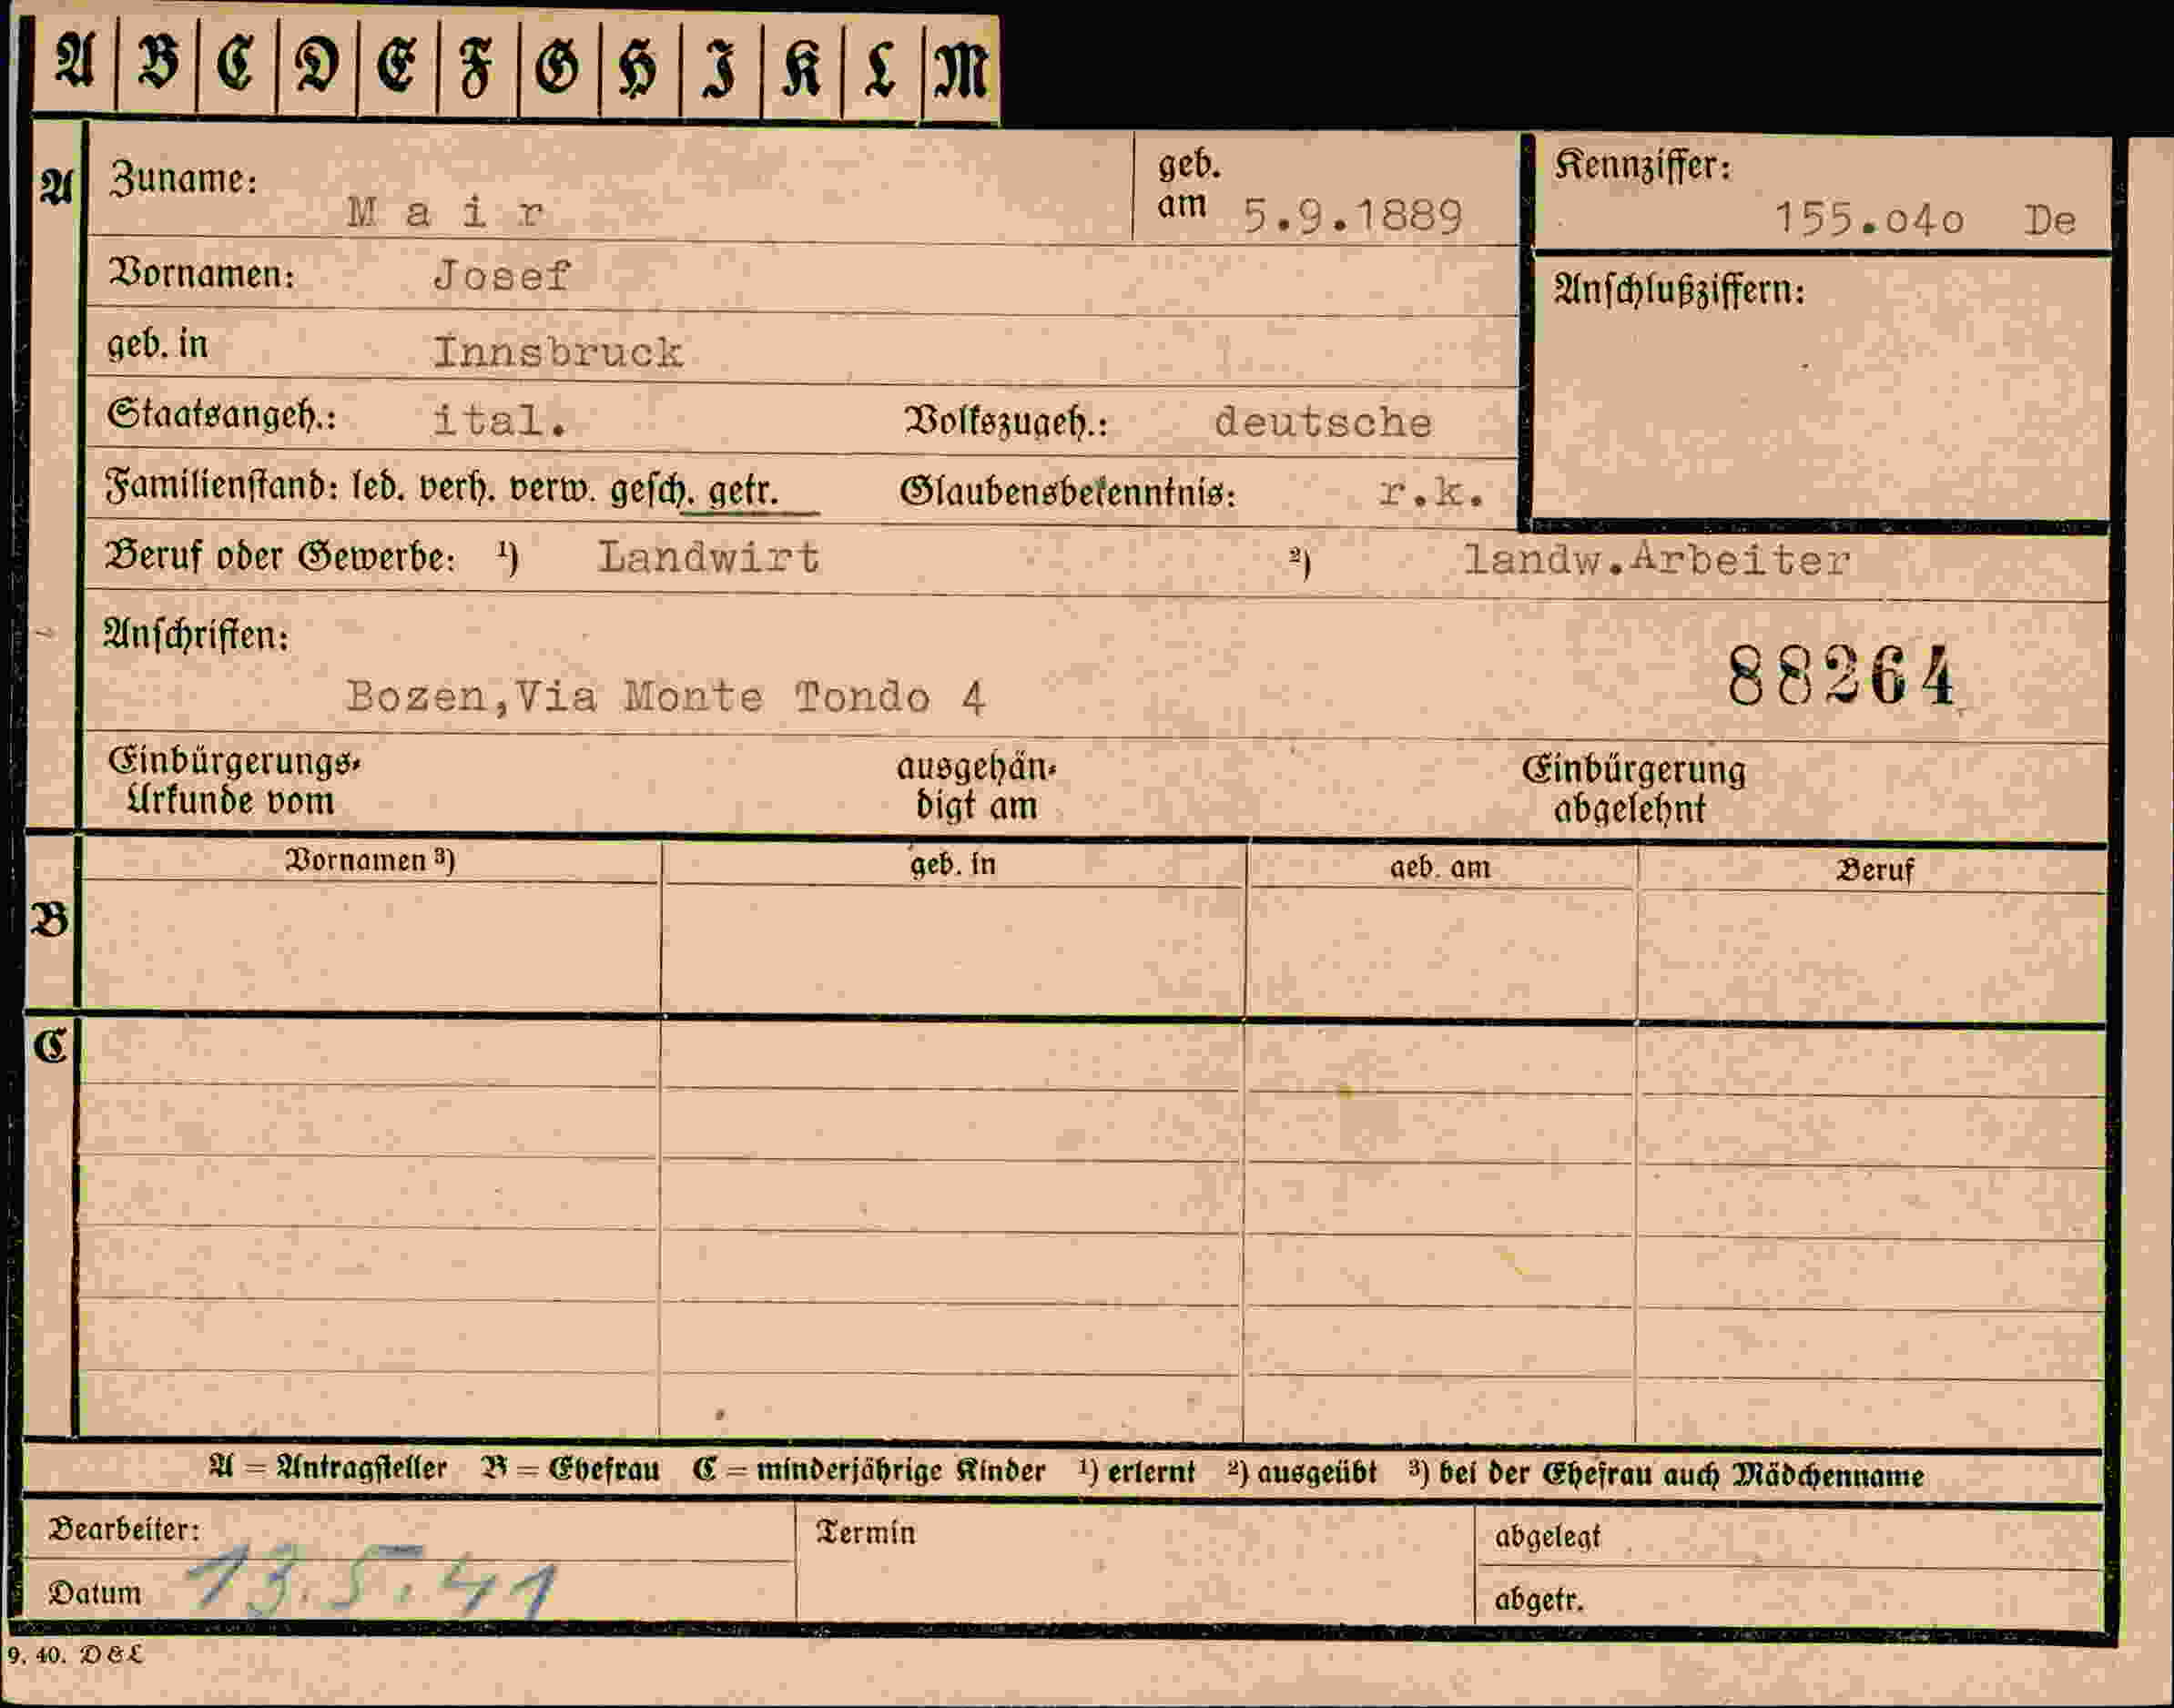 A B C D E F G H I K L M
A Zuname: M a i r geb. am 5.9.1889 Kennziffer: 155.o4o De
Vornamen: Josef Anschlußziffern:
geb. in Innsbruck
Staatsangeh.: ital. Volkszugeh.: deutsche
Familienstand: led. verh. verw. gesch. getr. Glaubensbekenntnis: r.k.
Beruf oder Gewerbe: ¹) Landwirt ²) landw.Arbeiter
Anschriften:
88264
Bozen,Via Monte Tondo 4
Einbürgerungs- ausgehän- Einbürgerung
Urkunde vom digt am abgelehnt
Vornamen ³) geb. in geb. am Beruf
B
C
A = Antragsteller B = Ehefrau C = minderjährige Kinder ¹) erlernt ²) ausgeübt ³) bei der Ehefrau auch Mädchenname
Bearbeiter: Termin abgelegt
Datum 13.5.41 abgetr.
9. 40. D & L